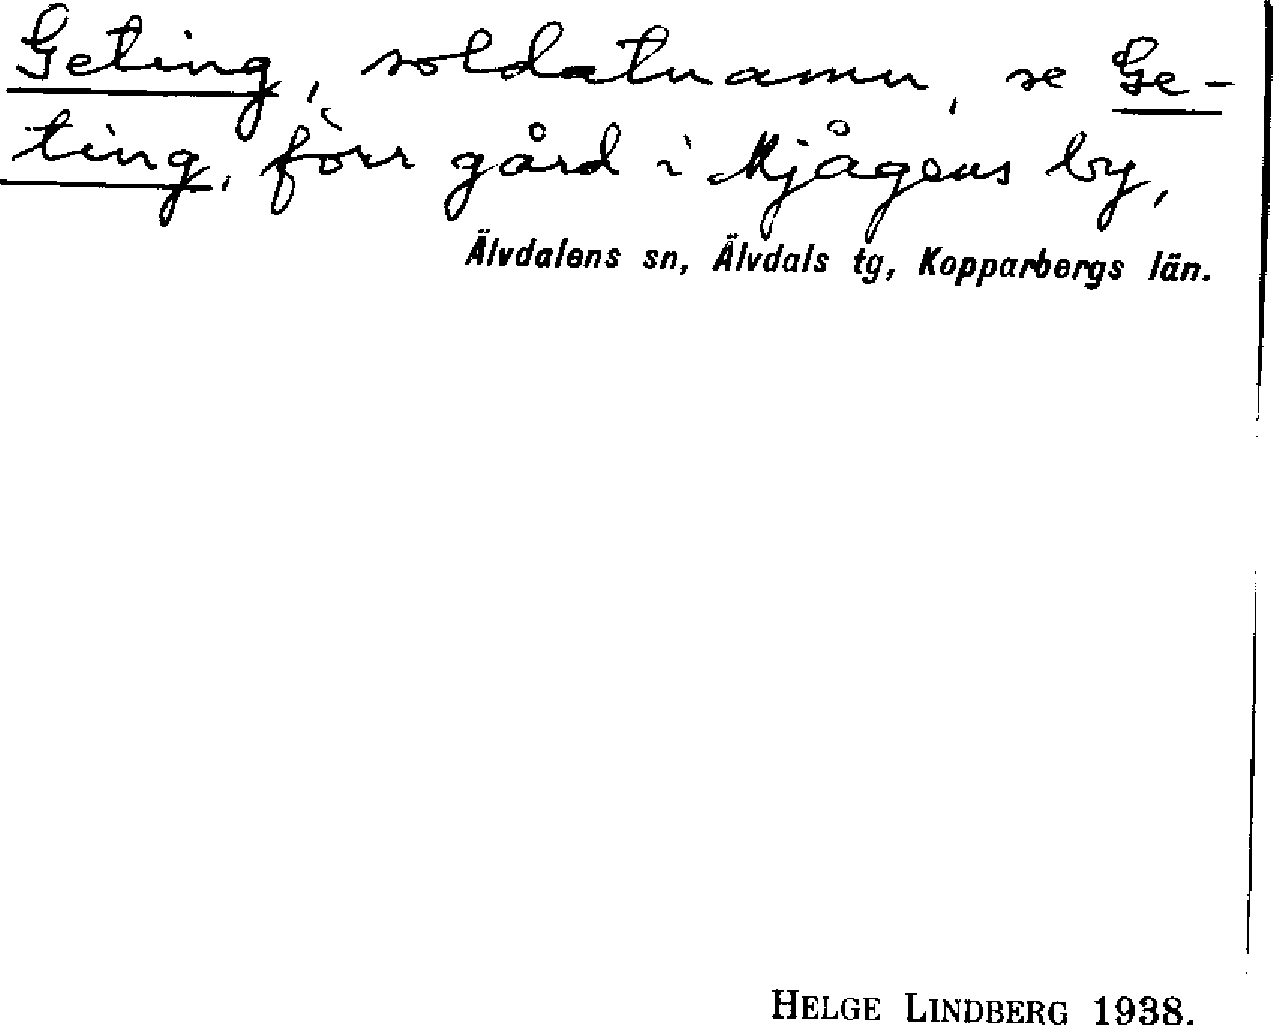 Geting, soldatnamn, se Ge-
ting, förr gård i Mjågens by,
Älvdalens sn, Älvdals tg, Kopparbergs län.
HELGE LINDBERG 1938.